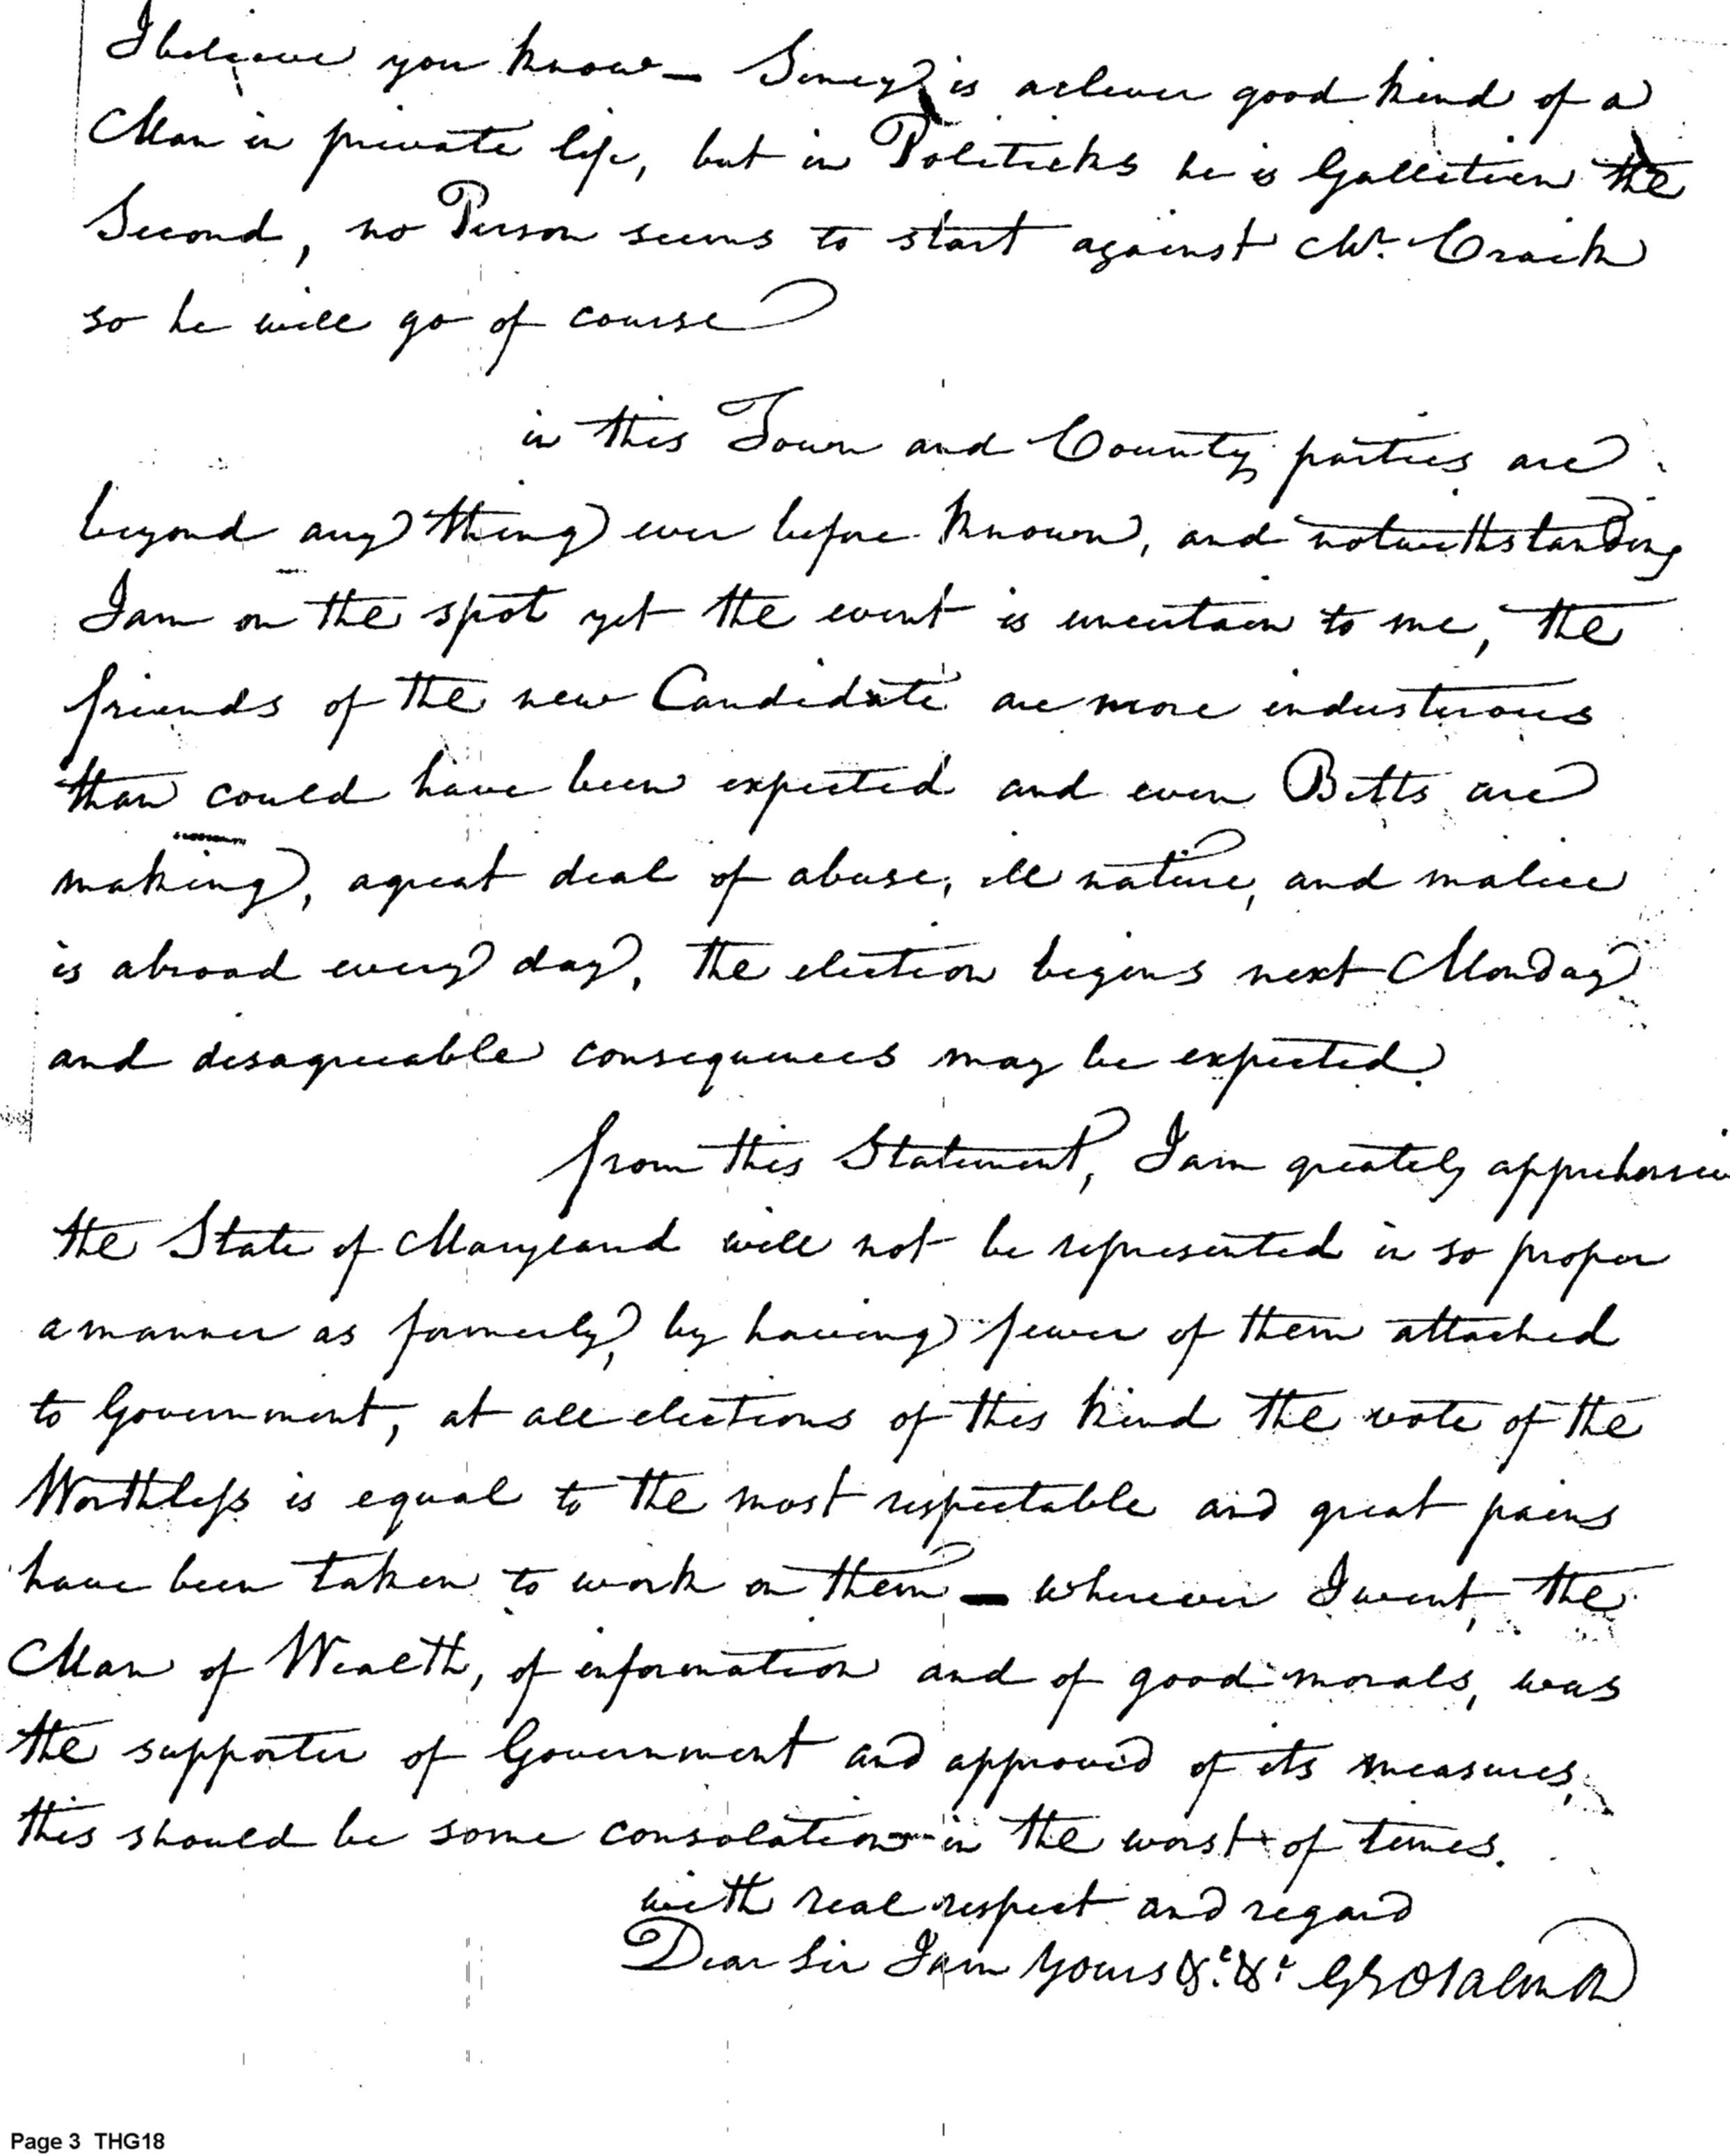 I believe you know — Siney is a clever good kind of a
Man in private life, but in Politicks he is Gallitien the
Second, no Person seems to start against Mr. Craik
so he will go of course
in this Town and County parties are
beyond any thing ever before known, and notwithstanding
I am on the spot yet the event is uncertain to me, the
friends of the new Candidate are more industerous
than could have been expected and even Betts are
making, a great deal of abuse, ill nature, and malice
is abroad every day, the election begins next Monday
and disagreeable consequences may be expected.
from this Statement, I am greately
the State of Maryland will not be represented in so proper
a manner as formerly, by having fewer of them attached
to Government, at all elections of this kind the vote of the
Worthless is equal to the most respectable and great pains
have been taken to work on them — wherever I went, the
Man of Wealth, of information and of good morals, was
the supporter of Government and approved of its measures,
this should be some consolation in the worst of times.
with real respect and regard
Dear Sir I am yours &c. &c.
Page 3 THG18